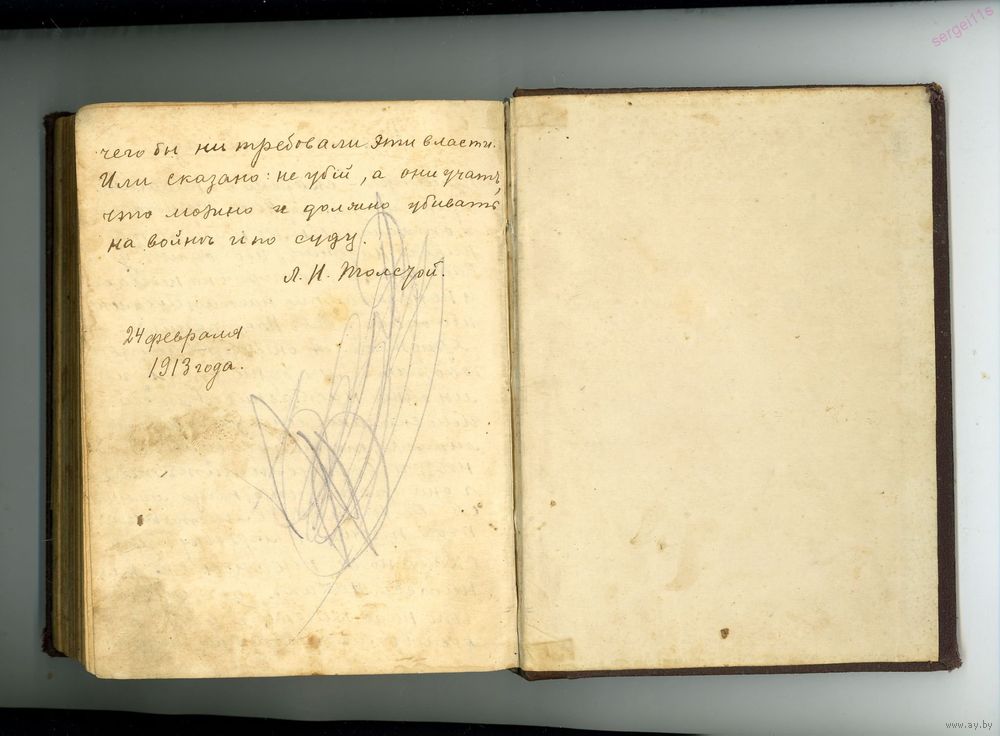 чего бы ни требовали эти власти.
Или сказано: не убій, а они учатъ,
что можно и должно убивать
на войнѣ и по суду.
Л. Н. Толстой.
24 февраля
1913 года.
sergei11s
www.ay.by